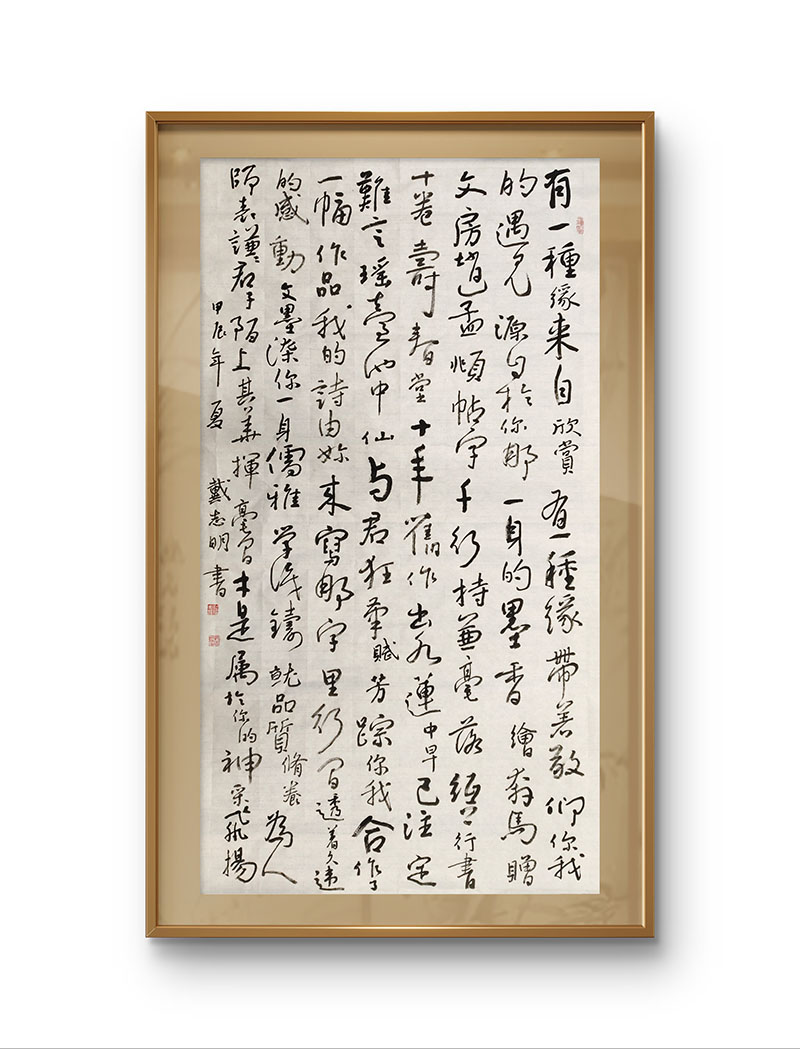 有一種緣来自欣賞有一種緣帶着敬仰你我
的遇見源自於你那一身的墨香繪奔馬贈
文房趙孟頫帖字千行持兼毫落紙上行書
十卷壽春堂十年舊作出水蓮中早已注定
難言瑶臺池中仙与君狂草賦芳踪你我合作了
一幅作品我的詩由妳来寫那字里行间透着久違
的感動文墨染你一身儒雅学識鑄就品質脩養為人
師表謙謙君子陌上其華揮毫间才是属於你的神采飛揚
甲辰年夏戴志明書